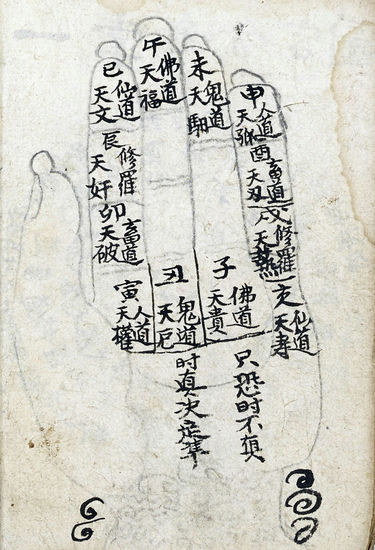 子
佛道
天貴
丑
鬼道
天厄
寅
人道
天權
卯
畜道
天破
辰
修羅
天奸
巳
仙道
天文
午
佛道
天福
未
鬼道
天馹
申
人道
天孤
酉
畜道
天刃
戌
修羅
天藝
亥
仙道
天壽
只恐时不真
时真决定準